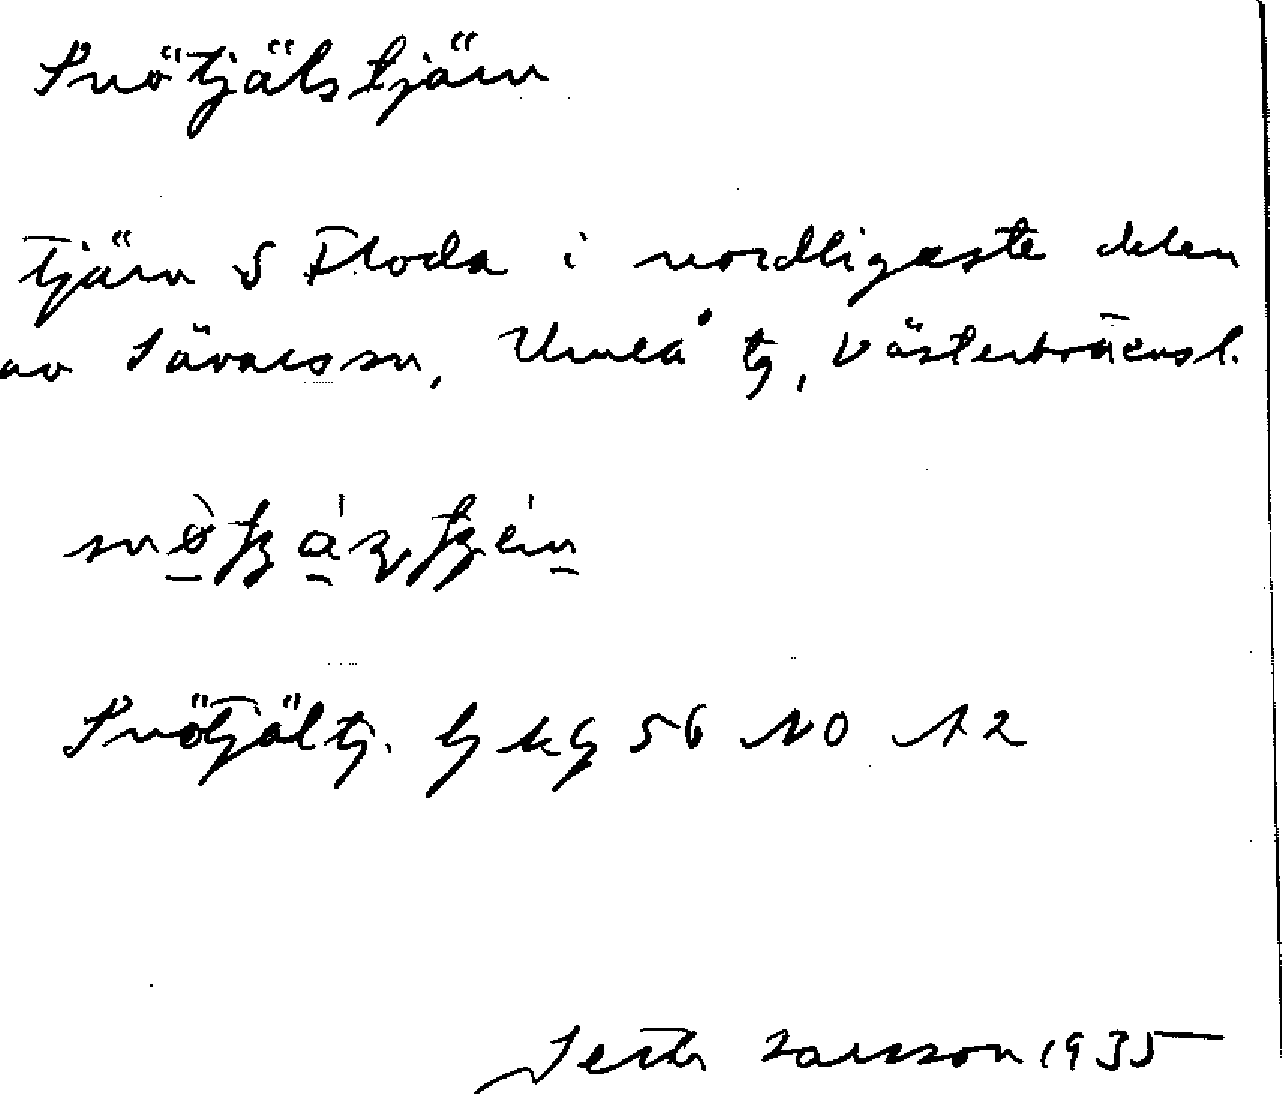 Snötjälstjärn
Tjärn S Floda i nordligaste delen
av Sävars sn, Umeå tg, Västerbottensl.
Snötjältj. gkg 56 NO 12
Seth Larsson 1935